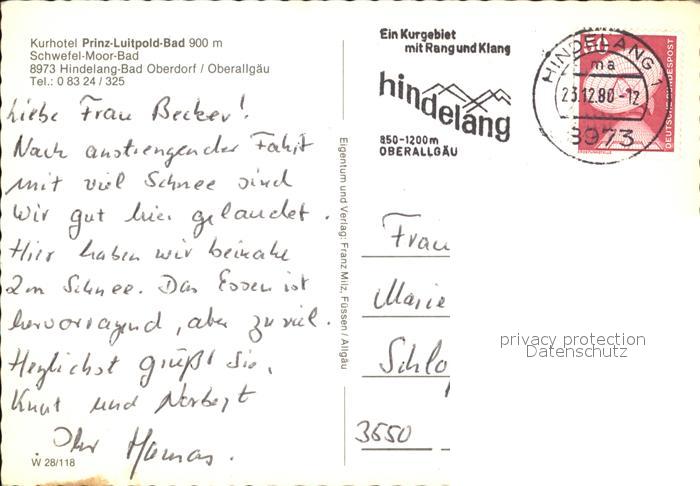 Kurhotel Prinz-Luitpold-Bad 900 m
Schwefel-Moor-Bad
8973 Hindelang-Bad Oberdorf / Oberallgäu
Tel.: 0 83 24 / 325
Liebe Frau Becker!
Nach anstrengender Fahrt
mit viel Schnee sind
wir gut hier gelandet.
Hier haben wir beinahe
2m Schnee. Das Essen ist
hervorragend, aber zu viel.
Herzlichst grüßt Sie,
Knut und Norbert
Ihr
W 28/118
Eigentum und Verlag: Franz Milz, Füssen / Allgäu
Ein Kurgebiet
mit Rang und Klang
hindelang
850-1200m
OBERALLGÄU
HINDELANG 1
ma
23.12.80-12
8973
50
DEUTSCHE BUNDESPOST
Frau
Marie
Schlo
3550
privacy protection
Datenschutz